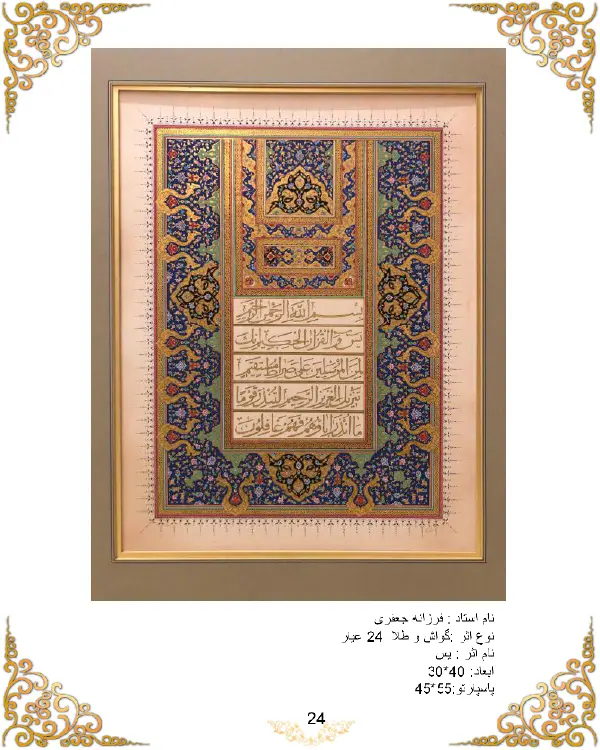 بسم الله الرحمن الرحیم
یس والقرآن الحکیم انک
لمن المرسلین علی صراط مستقیم
تنزیل العزیز الرحیم لتنذر قوما
ما انذر اباؤهم فهم غافلون
نام استاد : فرزانه جعفری
نوع اثر :گواش و طلا 24 عیار
نام اثر : یس
ابعاد: 40*30
پاسپارتو:55*45
24